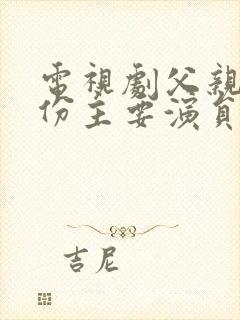 電視劇父親
份主要演員
吉尼